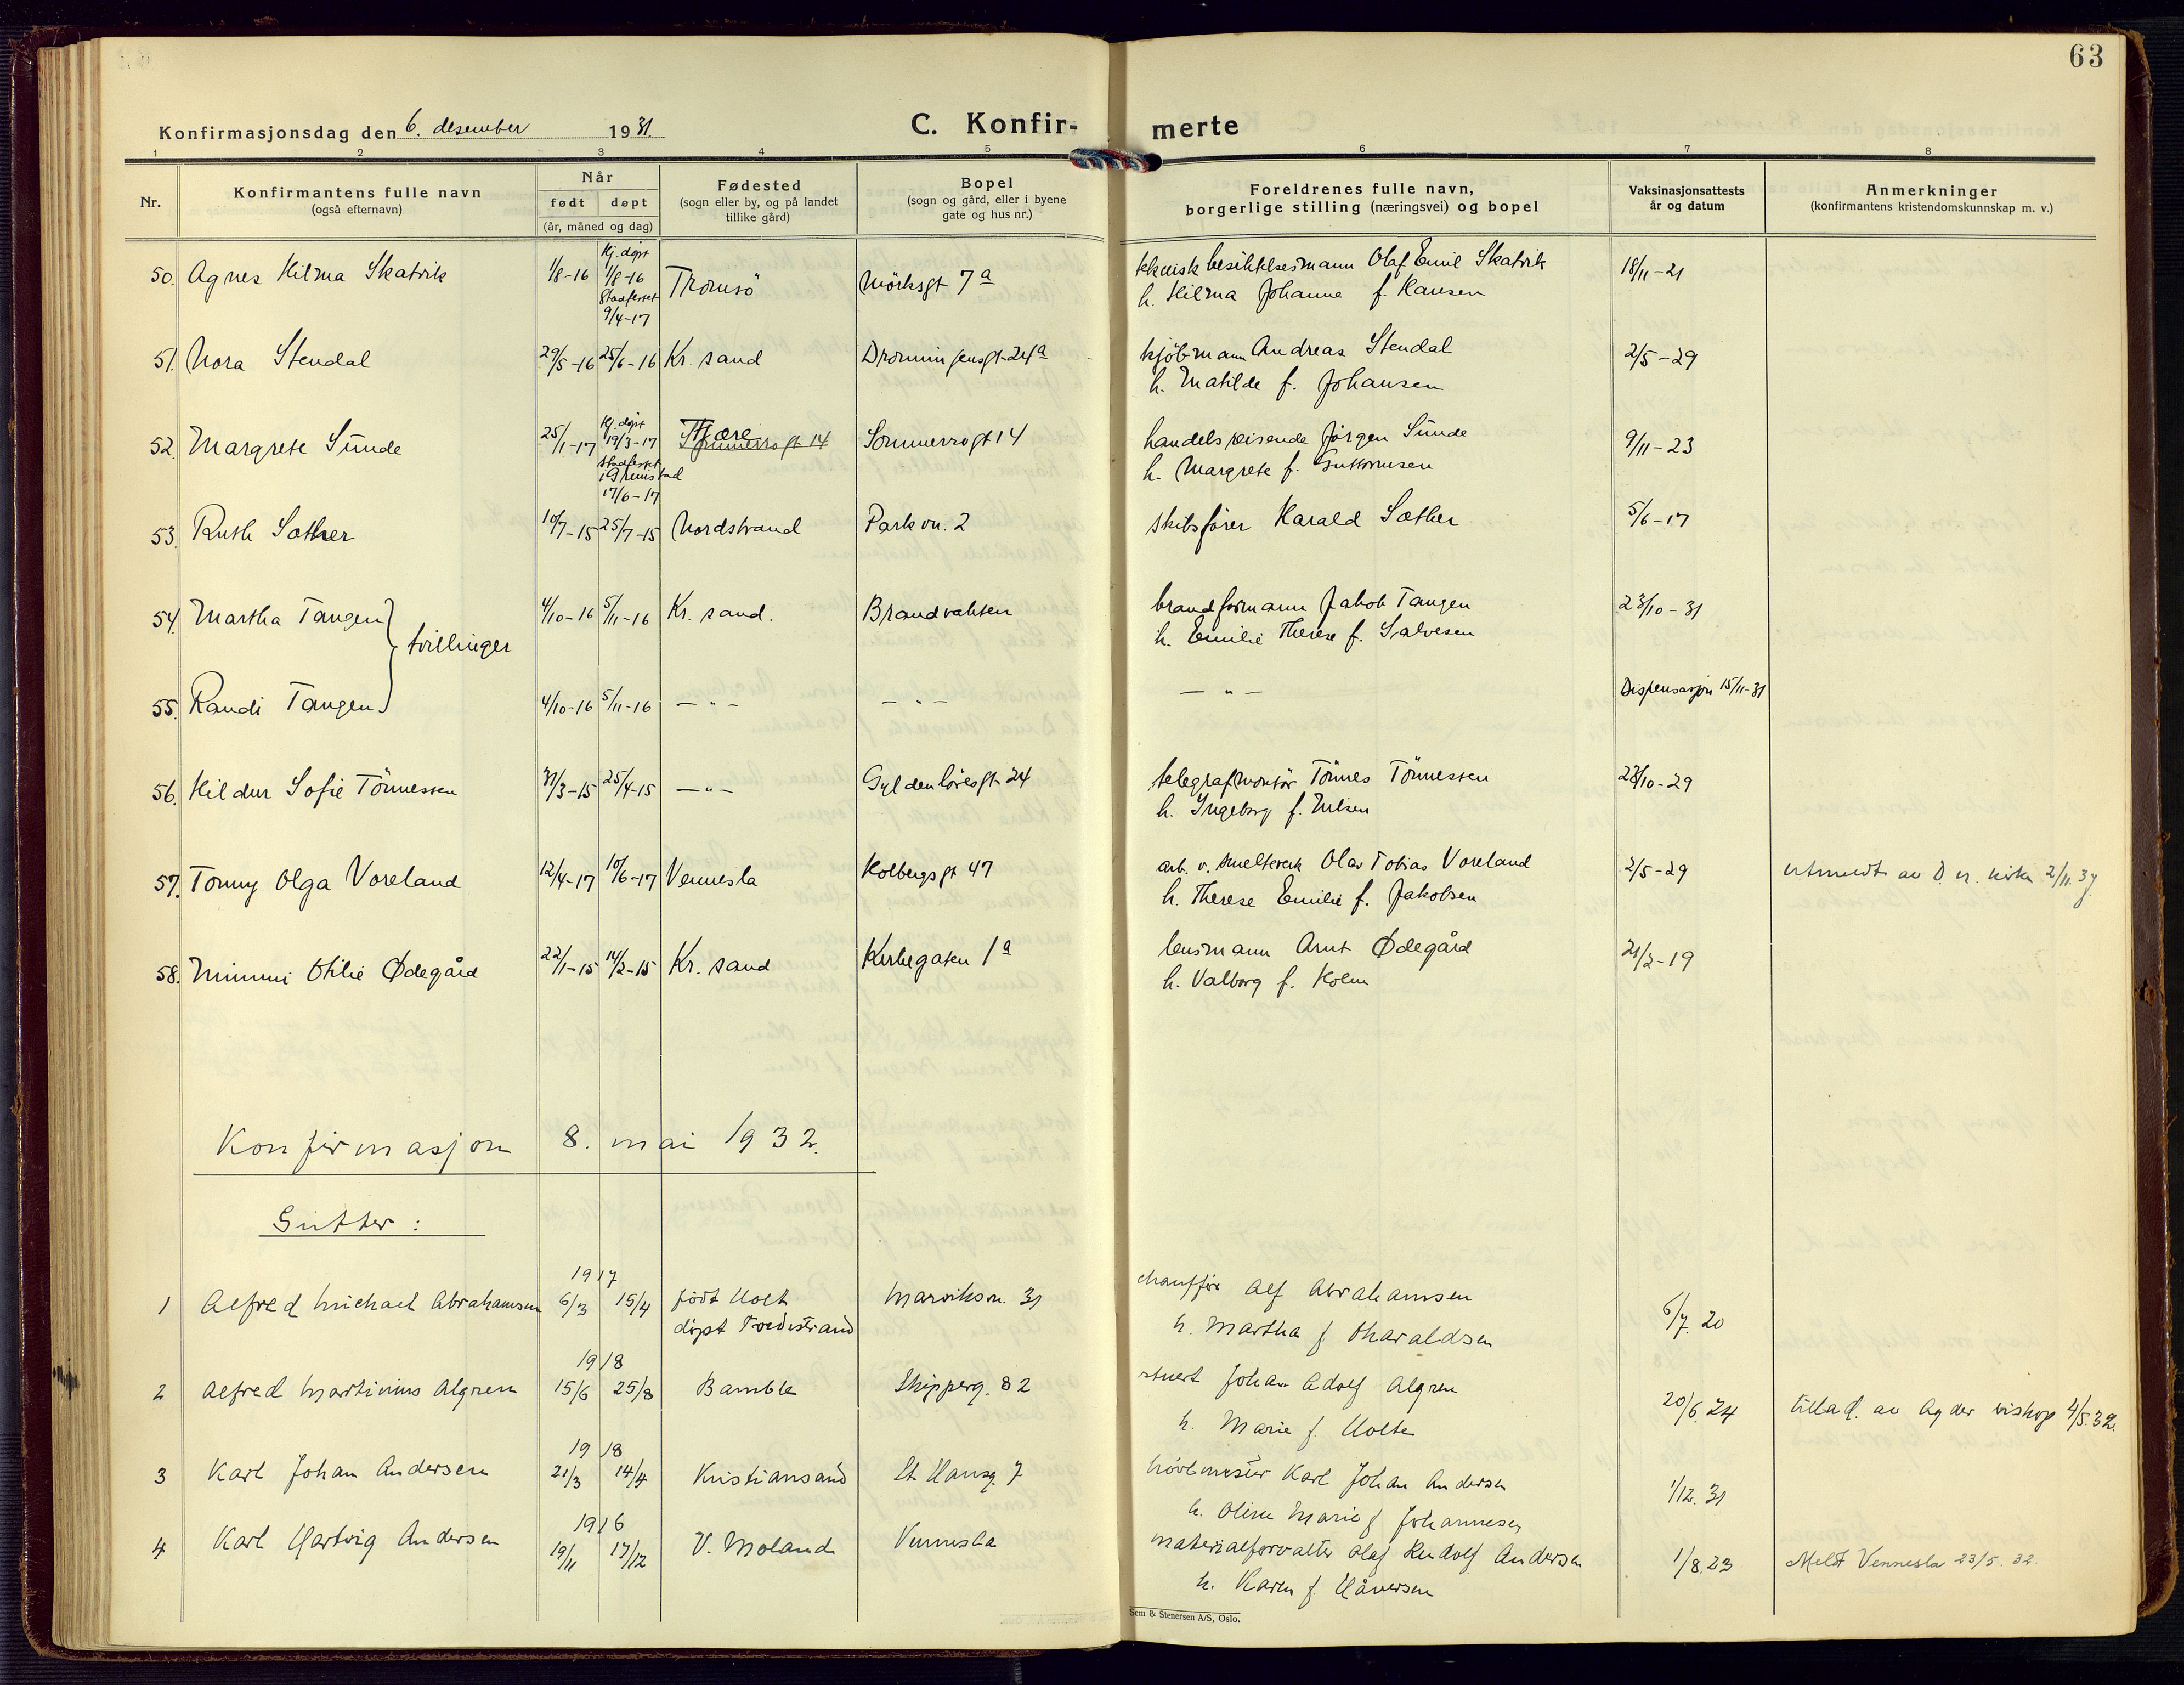 63
Konfirmasjonsdag den 6. desember 1931.
C. Konfir- merte
1 2 3 4 5 6 7 8
Nr.
Konfirmantens fulle navn
(også efternavn)
Når
født døpt
(år, måned og dag)
Fødested
(sogn eller by, og på landet
tillike gård)
Bopel
(sogn og gård, eller i byene
gate og hus nr.)
Foreldrenes fulle navn,
borgerlige stilling (næringsvei) og bopel
Vaksinasjonsattests
år og datum
Anmerkninger
(konfirmantens kristendomskunnskap m. v.)
50. Agnes Hilma Skatvik 1/8-16 Kj. døpt 1/8-16 Stadfestet 9/4-17 Tromsö Mörksgt 7a teknisk besiktelsesmann Olaf Emil Skatvik 18/11-21
h. Hilma Johanne f. Hansen
51. Nora Stendal 29/5-16 25/6-16 Kr. sand Dronningensgt 24a kjöbmann Andreas Stendal 2/5-29
h. Matilde f. Johansen
52. Margrete Sunde 25/1-17 Kj. døpt 19/3-17 stadfestet i Grimstad 17/6-17 Fjære Sommerrogt 14 Sommerrogt 14 handelsreisende Jörgen Sunde 9/11-23
h. Margrete f. Guttormsen
53. Ruth Sæther 10/7-15 25/7-15 Nordstrand Parkvn. 2 skibsfører Harald Sæther 5/6-17
54. Martha Tangen 4/10-16 5/11-16 Kr. sand. Brandvakten brandformann Jakob Tangen 23/10-31
tvillinger
h. Emilie Therese f. Salvesen
55. Randi Tangen 4/10-16 5/11-16 — " — — " — — " — Dispensasjon 15/11-31
56. Hildur Sofie Tönnessen 31/3-15 25/4-15 — " — Gyldenlövesgt 24 telegrafmontör Tönnes Tönnessen 23/10-29
h. Ingeborg f. Nilsen
57. Tonny Olga Voreland 12/4-17 10/6-17 Vennesla Holbergsgt 47 arb. v. smelteverk Olav Tobias Voreland 2/5-29 utmeldt av D. n. kirke 2/11.37
h. Therese Emilie f. Jakobsen
58. Mimmi Otilie Ødegård 22/1-15 14/2-15 Kr. sand Kirkegaten 1a lensmann Arnt Ødegård 21/2-19
h. Valborg f. Holm
Konfirmasjon 8. mai 1932.
Gutter:
1 Alfred Michael Abrahamsen 1917 6/3 15/4 födt Holt Marviksvn. 31 chauffør Alf Abrahamsen 6/7. 20
döpt Tvedestrand h. Martha f. Charaldsen
2 Alfred Martinius Algren 1918 15/6 25/8 Bamble Skipperg. 82 stuert Johan Adolf Algren 20/6. 24 tillad. av Agder biskop 4/5. 32.
h. Marie f. Holte
3 Karl Johan Andersen 1918 21/3 14/4 Kristiansand St Hansg. 7 Karl Johan Andersen 1/12. 31
h. Oline Marie f. Johannesen
4 Karl Hartvig Andersen 1916 19/11 17/12 V. Moland Vennesla materialforvalter Olaf Rudolf Andersen 1/8.23 Meldt Vennesla 23/5. 32.
h. Karen f. Håversen
Sem & Stenersen A/S, Oslo.